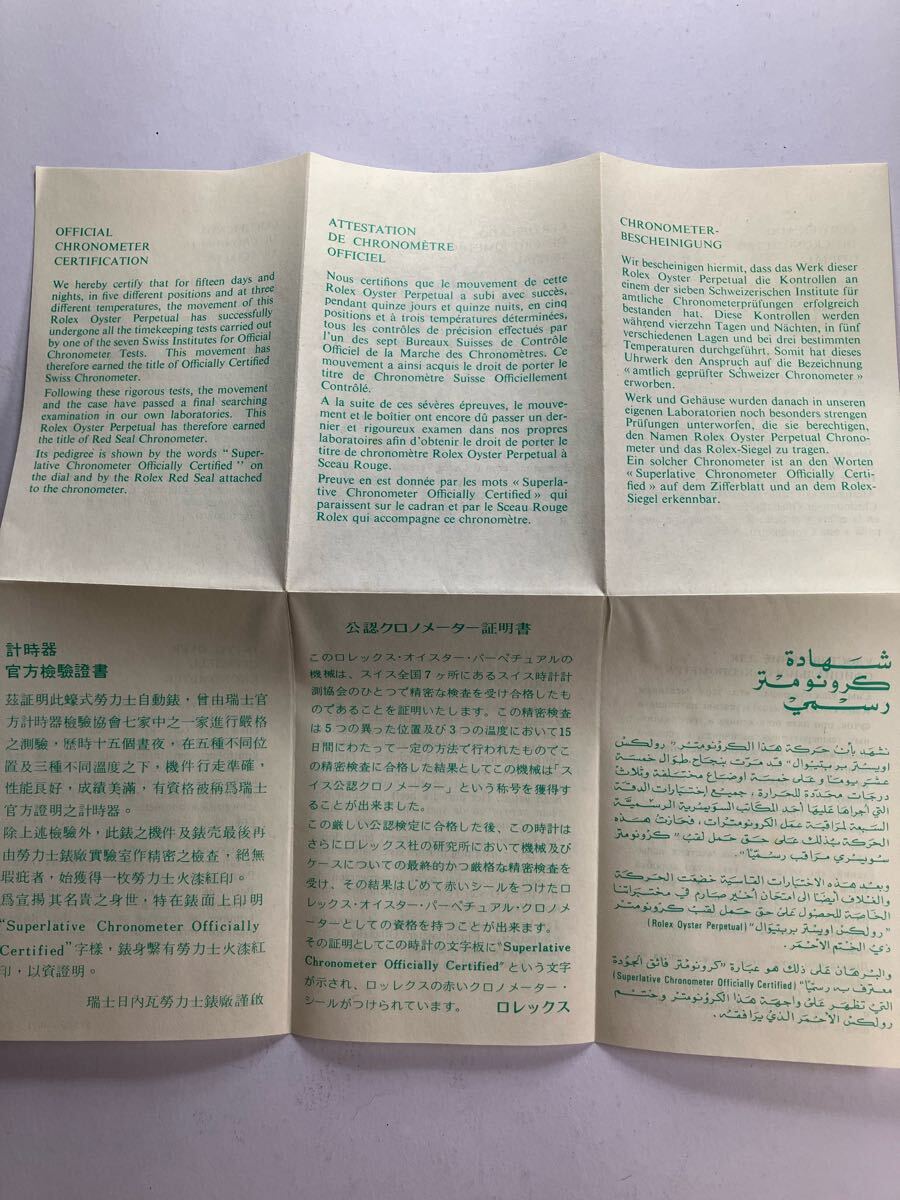 OFFICIAL
CHRONOMETER
CERTIFICATION
We hereby certify that for fifteen days and
nights, in five different positions and at three
different temperatures, the movement of this
Rolex Oyster Perpetual has successfully
undergone all the timekeeping tests carried out
by one of the seven Swiss Institutes for Official
Chronometer Tests. This movement has
therefore earned the title of Officially Certified
Swiss Chronometer.
Following these rigorous tests, the movement
and the case have passed a final searching
examination in our own laboratories. This
Rolex Oyster Perpetual has therefore earned
the title of Red Seal Chronometer.
Its pedigree is shown by the words “Super-
lative Chronometer Officially Certified” on
the dial and by the Rolex Red Seal attached
to the chronometer.
ATTESTATION
DE CHRONOMÈTRE
OFFICIEL
Nous certifions que le mouvement de cette
Rolex Oyster Perpetual a subi avec succès,
pendant quinze jours et quinze nuits, en cinq
positions et à trois températures déterminées,
tous les contrôles de précision effectués par
l'un des sept Bureaux Suisses de Contrôle
Officiel de la Marche des Chronomètres. Ce
mouvement a ainsi acquis le droit de porter le
titre de Chronomètre Suisse Officiellement
Contrôlé.
A la suite de ces sévères épreuves, le mouve-
ment et le boîtier ont encore dû passer un der-
nier et rigoureux examen dans nos propres
laboratoires afin d'obtenir le droit de porter le
titre de chronomètre Rolex Oyster Perpetual à
Sceau Rouge.
Preuve en est donnée par les mots « Superla-
tive Chronometer Officially Certified » qui
paraissent sur le cadran et par le Sceau Rouge
Rolex qui accompagne ce chronomètre.
CHRONOMETER-
BESCHEINIGUNG
Wir bescheinigen hiermit, dass das Werk dieser
Rolex Oyster Perpetual die Kontrollen an
einem der sieben Schweizerischen Institute für
amtliche Chronometerprüfungen erfolgreich
bestanden hat. Diese Kontrollen werden
während vierzehn Tagen und Nächten, in fünf
verschiedenen Lagen und bei drei bestimmten
Temperaturen durchgeführt. Somit hat dieses
Uhrwerk den Anspruch auf die Bezeichnung
« amtlich geprüfter Schweizer Chronometer »
erworben.
Werk und Gehäuse wurden danach in unseren
eigenen Laboratorien noch besonders strengen
Prüfungen unterworfen, die sie berechtigen,
den Namen Rolex Oyster Perpetual Chrono-
meter und das Rolex-Siegel zu tragen.
Ein solcher Chronometer ist an den Worten
« Superlative Chronometer Officially Certi-
fied » auf dem Zifferblatt und an dem Rolex-
Siegel erkennbar.
計時器
官方檢驗證書
茲証明此蠔式勞力士自動錶，曾由瑞士官
方計時器檢驗協會七家中之一家進行嚴格
之測驗，歷時十五個晝夜，在五種不同位
置及三種不同溫度之下，機件行走準確，
性能良好，成績美滿，有資格被稱爲瑞士
官方證明之計時器。
除上述檢驗外，此錶之機件及錶壳最後再
由勞力士錶廠實驗室作精密之檢查，絕無
瑕疵者，始獲得一枚勞力士火漆紅印。
爲宣揚其名貴之身世，特在錶面上印明
“Superlative Chronometer Officially
Certified”字樣，錶身繫有勞力士火漆紅
印，以資證明。
瑞士日內瓦勞力士錶廠謹啟
公認クロノメーター証明書
このロレックス・オイスター・パーペチュアルの
機械は、スイス全国7ヶ所にあるスイス時計計
測協会のひとつで精密な検査を受け合格したも
のであることを証明いたします。この精密検査
は5つの異った位置及び3つの温度において15
日間にわたって一定の方法で行われたものでこ
の精密検査に合格した結果としてこの機械は「ス
イス公認クロノメーター」という称号を獲得す
ることが出来ました。
この厳しい公認検定に合格した後、この時計は
さらにロレックス社の研究所において機械及び
ケースについての最終的かつ厳格な精密検査を
受け、その結果はじめて赤いシールをつけたロ
レックス・オイスター・パーペチュアル・クロノメ
ーターとしての資格を持つことが出来ます。
その証明としてこの時計の文字板に“Superlative
Chronometer Officially Certified”という文字
が示され、ロッレクスの赤いクロノメーター・
シールがつけられています。 ロレックス
شهادة
كرونومتر
رسمي
نشهد بأن حركة هذا الكرونومتر "رولكس
اويستر بربتيوال" قد مرت بنجاح طوال خمسة
عشر يوما وعلى خمسة اوضاع مختلفة وثلاث
درجات محددة للحرارة، جميع اختبارات الدقة
التي أجراها عليها أحد المكاتب السويسرية الرسمية
السبعة لمراقبة عمل الكرونومترات، فحازت هذه
الحركة بذلك على حق حمل لقب "كرونومتر
سويسري مراقب رسميا".
وبعد هذه الاختبارات القاسية خضعت الحركة
والغلاف أيضا الى امتحان أخير صارم في مختبراتنا
الخاصة للحصول على حق حمل لقب كرونومتر
"رولكس اويستر بربتيوال" (Rolex Oyster Perpetual)
ذي الختم الأحمر.
والبرهان على ذلك هو عبارة "كرونومتر فائق الجودة
معترف به رسميا" (Superlative Chronometer Officially Certified)
التي تظهر على واجهة هذا الكرونومتر وختم
رولكس الأحمر الذي يرافقه.